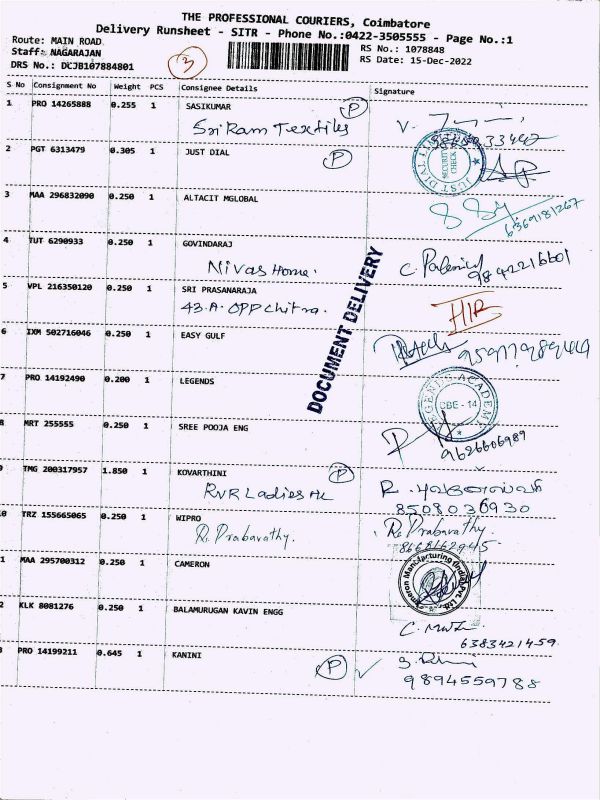 THE PROFESSIONAL COURIERS, Coimbatore
Delivery Runsheet - SITR - Phone No.:0422-3505555 - Page No.:1
Route: MAIN ROAD
Staff: NAGARAJAN
DRS No.: DCJB107884801
3
RS No.: 1078848
RS Date: 15-Dec-2022
S No Consignment No Weight PCS Consignee Details Signature
1 PRO 14265888 0.255 1 SASIKUMAR P
Sri Ram Textiles
2 PGT 6313479 0.305 1 JUST DIAL P
SECURITY CHECK
3 MAA 296832090 0.250 1 ALTACIT MGLOBAL
6369181267
4 TUT 6290933 0.250 1 GOVINDARAJ
Nivas Home. 9842216601
5 VPL 216350120 0.250 1 SRI PRASANARAJA
43.A. OPP Chitra.
DOCUMENT DELIVERY
6 IXM 502716046 0.250 1 EASY GULF
7 PRO 14192490 0.200 1 LEGENDS
CBE - 14
8 MRT 255555 0.250 1 SREE POOJA ENG
9626606989
9 TMG 200317957 1.850 1 KOVARTHINI P
RVR Ladies
8508036930
0 TRZ 155665065 0.250 1 WIPRO
R. Prabavathy. R. Prabavathy.
8668162945
1 MAA 295700312 0.250 1 CAMERON
Cameron Manufacturing (India) Pvt. Ltd.
2 KLK 8081276 0.250 1 BALAMURUGAN KAVIN ENGG
6383421459
3 PRO 14199211 0.645 1 KANINI P
9894559788